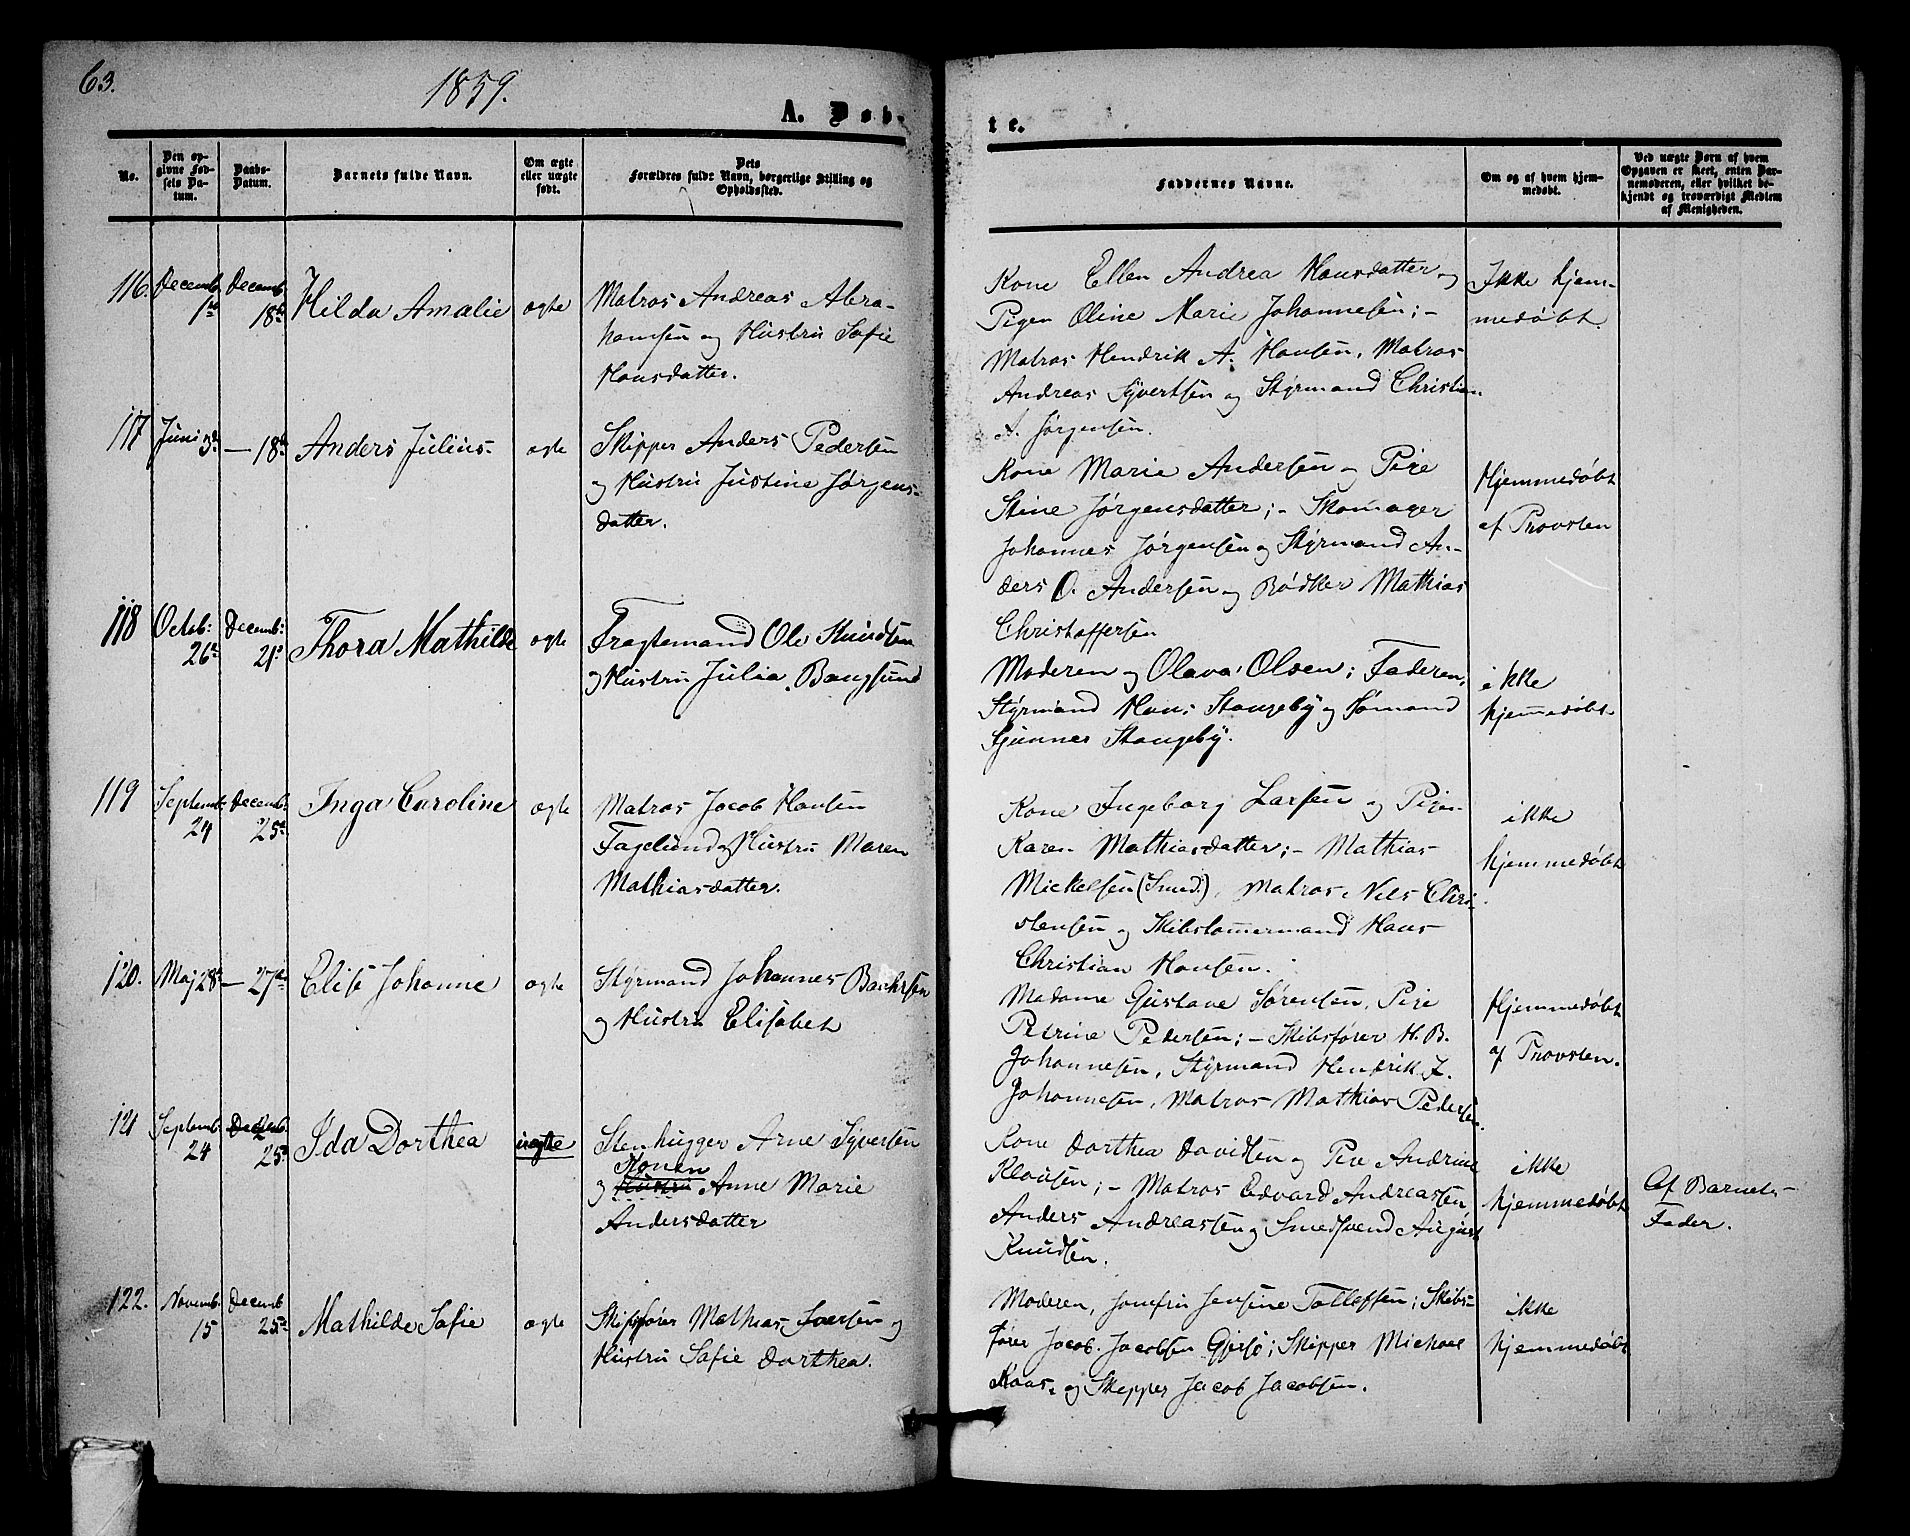 63.
1859.
A. Døb-
te.
No.
Den op-
givne Fød-
sels Da-
tum.
Daabs-
Datum.
Barnets fulde Navn.
Om ægte
eller uægte
født.
Dets
Forældres fulde Navn, borgerlige Stilling og
Opholdssted.
Faddernes Navne.
Om og af hvem hjem-
medøbt.
Ved uægte Børn af hvem
Opgaven er skeet, enten Bar-
nemoderen, eller hvilket be-
kjendt og troværdigt Medlem
af Menigheden.
116.
Decemb.
1ste
Decemb.
18de
Hilda Amalie
ægte
Matros Andreas Abra-
hamsen og Hustru Sofie
Hansdatter.
Kone Ellen Andrea Hansdatter og
Pigen Oline Marie Johannesen; -
Matros Hendrik A. Hansen, Matros
Andreas Syvertsen og Styrmand Christian
A. Jørgensen.
Ikke hjem-
medøbt.
117
Juni 3de
— 18de
Anders Julius-
ægte
Skipper Anders Pedersen
og Hustru Justine Jørgens-
datter.
Kone Marie Andersen og Pige
Stine Jørgensdatter; - Skomager
Johannes Jørgensen og Styrmand An-
ders O. Andersen og Bødker Mathias
Christoffersen
Hjemmedøbt
af Provsten
118
Octob:
26de
Decemb:
21de
Thora Mathilde
ægte
Fragtemand Ole Knudsen
og Hustru Julia Bangsund
Moderen og Olava Olsen; Faderen,
Styrmand Hans Stangeby og Sømand
Gunner Stangeby.
ikke
hjemmedøbt
119
Septemb.
24
Decemb.
25de
Inga Caroline
ægte
Matros Jacob Hansen
Fagelund og Hustru Maren
Mathiasdatter.
Kone Ingeborg Larsen og Pigen
Karen Mathiasdatter; - Mathias
Mickelsen (Smed), Matros Nils Chri-
stensen og Skibstømmermand Hans
Christian Hansen.
ikke
hjemmedøbt
120.
Maj 28de
— 27de
Elise Johanne
ægte
Styrmand Johannes
og Hustru Elisabet
Madame Gustave Sørensen, Pige
Petrine Pedersen; - Skibsfører H. B.
Johannesen, Styrmand Hendrik Z.
Johannesen, Matros Mathias Pedersen.
Hjemmedøbt
af Provsten.
121
Septemb.
24
Decemb.
25de
Ida Dorthea
uægte
Stenhugger Arne Syversen
Konen
og Hustru Anne Marie
Andersdatter
Kone Dorthea Davidsen og Pige Andrine
Klausen; - Matros Edvard Andreasen,
Anders Andreasen og Smedsvend August
Knudsen.
ikke
hjemmedøbt
Af Barnets
Fader.
122.
Novemb.
15
Decemb
25de
Mathilde Sofie
ægte
Skibsfører Mathias Iversen og
Hustru Sofie Dorthea.
Moderen, Jomfru Jensine Tollefsen; Skibs-
fører Jacob Jacobsen Gjersø; Skipper Michael
Kaas og Skipper Jacob Jacobsen.
ikke
hjemmedøbt